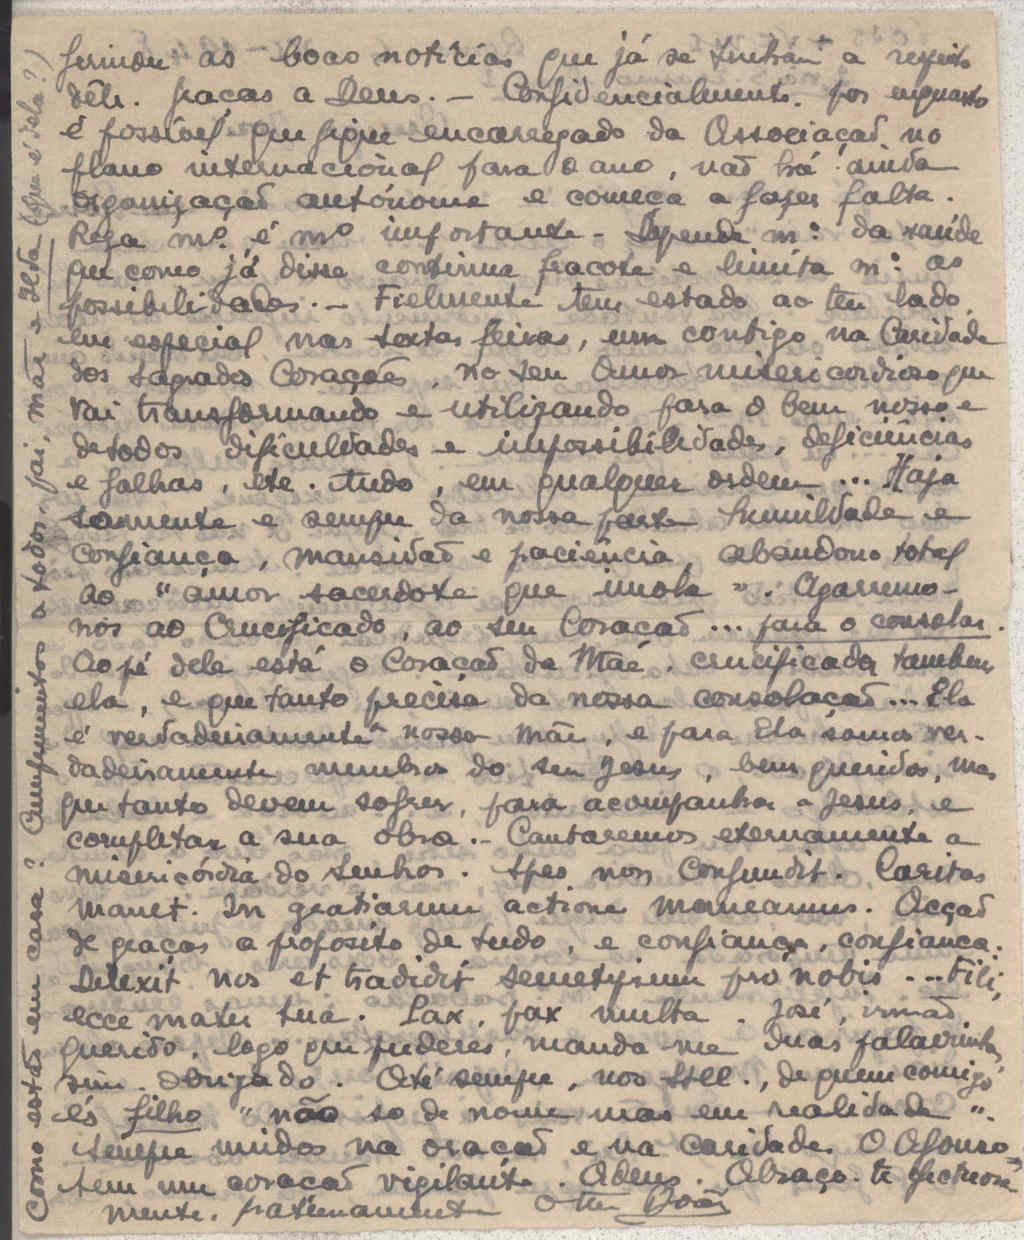 as boas notícias que já se tinham a respeito
dêle. Graças a Deus. – Confidencialmente. por enquanto
é possível que fique encarregado da Associação no
plano internacional para o ano, não há ainda
organização autónoma e começa a fazer falta.
Reza mº. é mº importante – Depende mº. da saúde
que como já disse continua fracota e limita mº. as
possibilidades. – Fielmente tem estado ao teu lado
em especial nas sextas feiras, um contigo na Caridade
dos Sagrados Corações, no seu Amor misericordioso que
vai transformando e utilizando para o bem nosso e
de todos dificuldades e impossibilidades, deficiências
e falhas, etc. tudo, em qualquer ordem ... Haja
somente e sempre da nossa parte humildade e
confiança, mansidão e paciência, abandono total
ao "amor sacerdote que imola". Agarremo-
nos ao Crucificado, ao seu Coração ... para o consolar.
Ao pé dele está o Coração da Mãe, crucificada tambem
ela, e que tanto precisa da nossa consolação ... Ela
é verdadeiramente nossa Mãe, e para Ela somos ver-
dadeiramente membros do seu Jesus, bem queridos, mas
que tanto devem sofrer, para acompanhar a Jesus, e
completar a sua obra. – Cantaremos eternamente a
misericórdia do Senhor. Spes non confundit. Caritas
manet. In gratiarum actione maneamus. Acção
de graças a proposito de tudo, e confiança, confiança.
Dilexit nos et tradidit semetipsum pro nobis ... Fili,
ecce mater tua. Pax, pax multa. José, irmão
querido, logo que puderes, manda-me duas palavrinhas,
sim. Obrigado. Até sempre, nos de quem comigo
és filho "não só de nome mas em realidade".
Sempre unidos na oração e na caridade. O Afonso
tem um coração vigilante. Adeus. Abraço-te afectuosa
mente. fraternamente o teu João
Como estão em casa? Cumprimentos a todos, pai, mãe e Ilda (que é dela?)